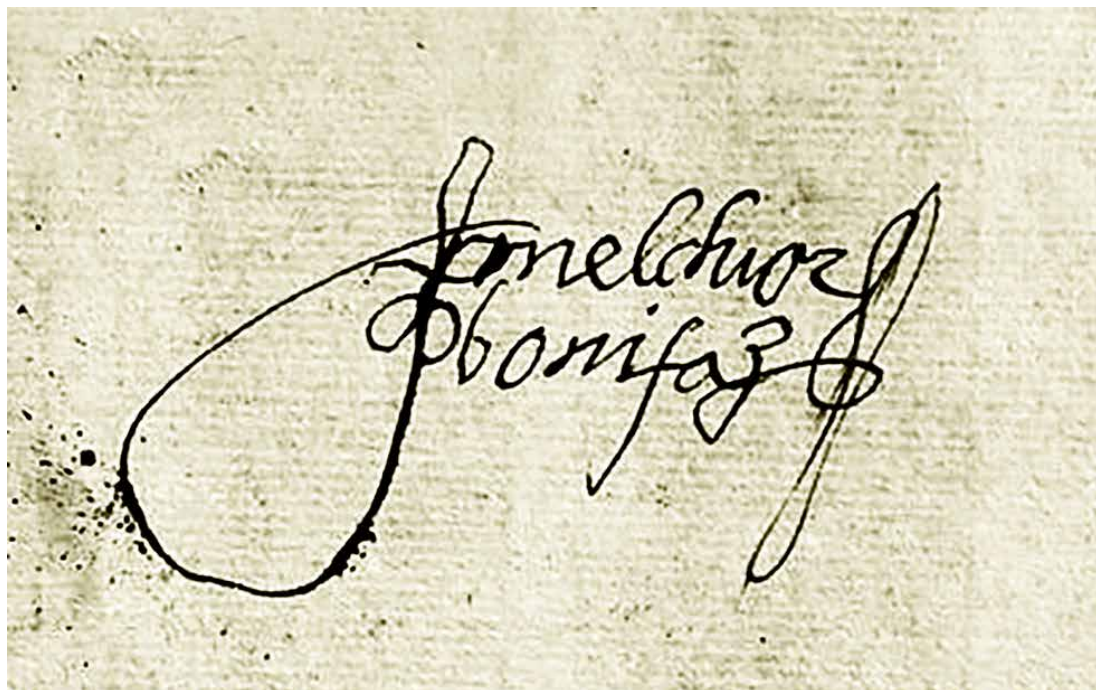 melchior
bonifaz